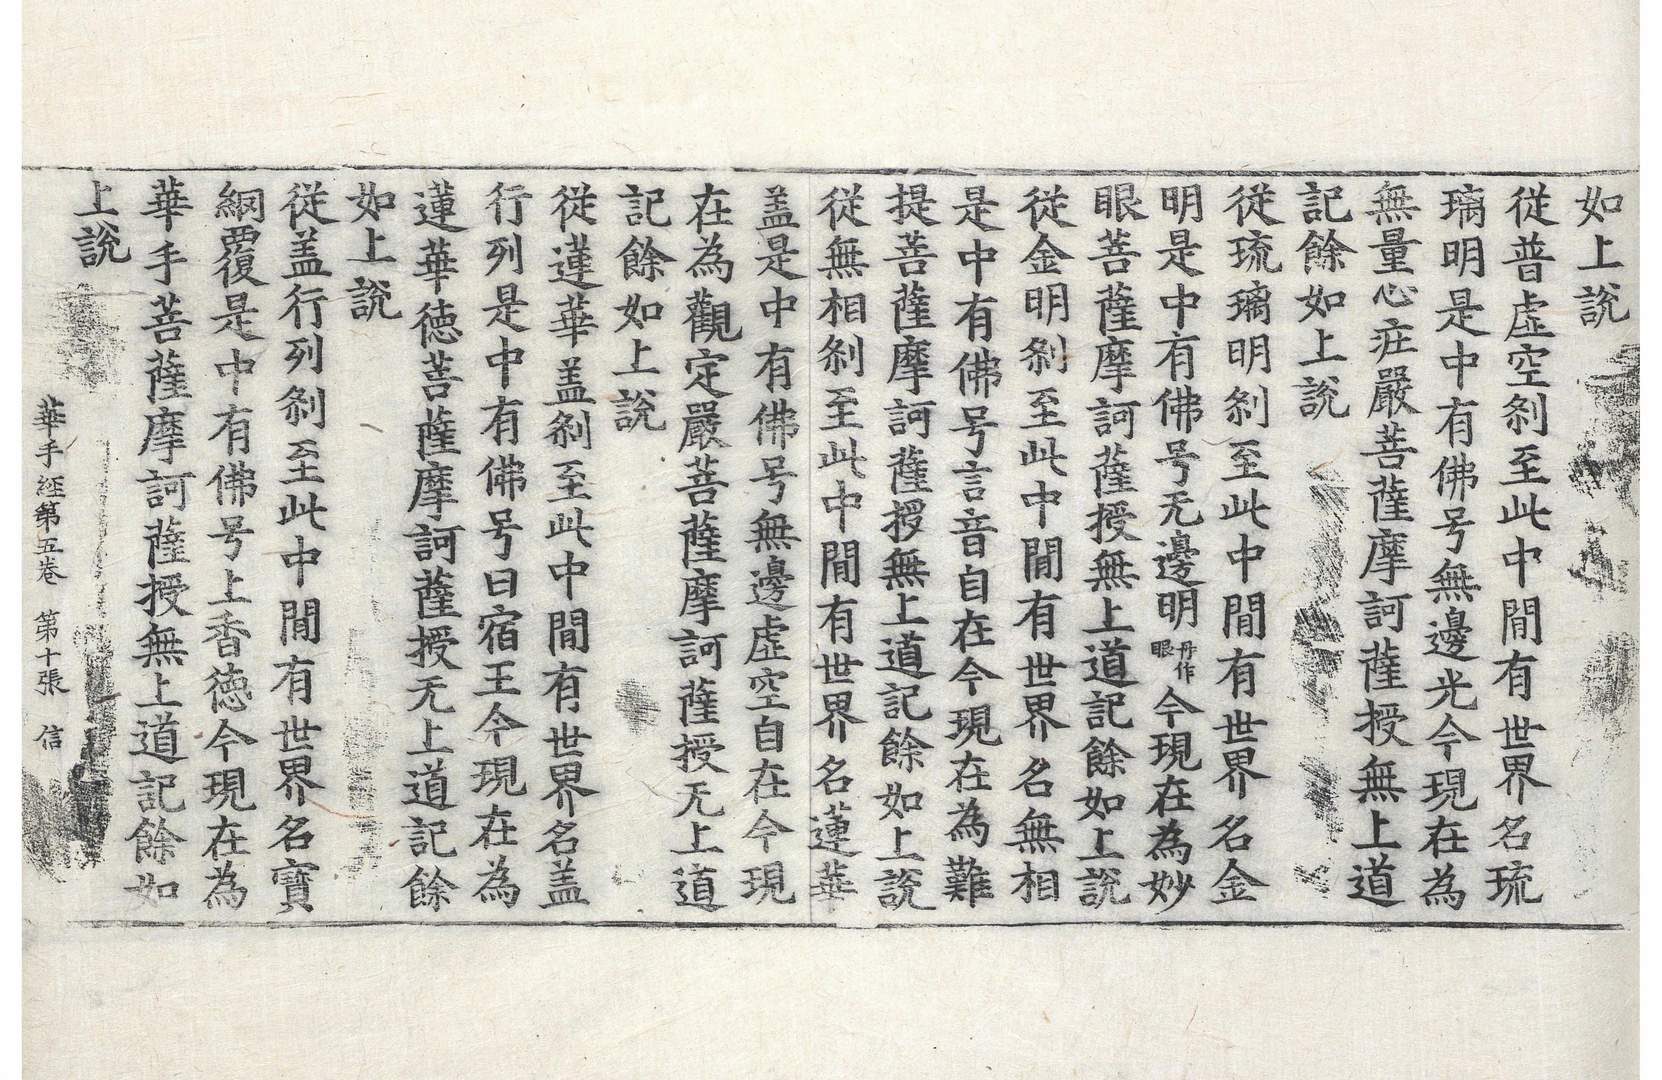 如上說
從普虛空刹至此中間有世界名琉
璃明是中有佛号無邊光今現在為
無量心㽵嚴菩薩摩訶薩授無上道
記餘如上說
從琉璃明刹至此中間有世界名金
明是中有佛号无邊明丹作眼今現在為妙
眼菩薩摩訶薩授無上道記餘如上說
從金明刹至此中間有世界名無相
是中有佛号言音自在今現在為難
提菩薩摩訶薩授無上道記餘如上說
從無相刹至此中間有世界名蓮華
盖是中有佛号無邊虛空自在今現
在為觀定嚴菩薩摩訶薩授无上道
記餘如上說
從蓮華盖刹至此中間有世界名盖
行列是中有佛号曰宿王今現在為
蓮華德菩薩摩訶薩授无上道記餘
如上說
從盖行列刹至此中間有世界名寶
網覆是中有佛号上香德今現在為
華手菩薩摩訶薩授無上道記餘如
上說
華手経第五卷 第十張 信